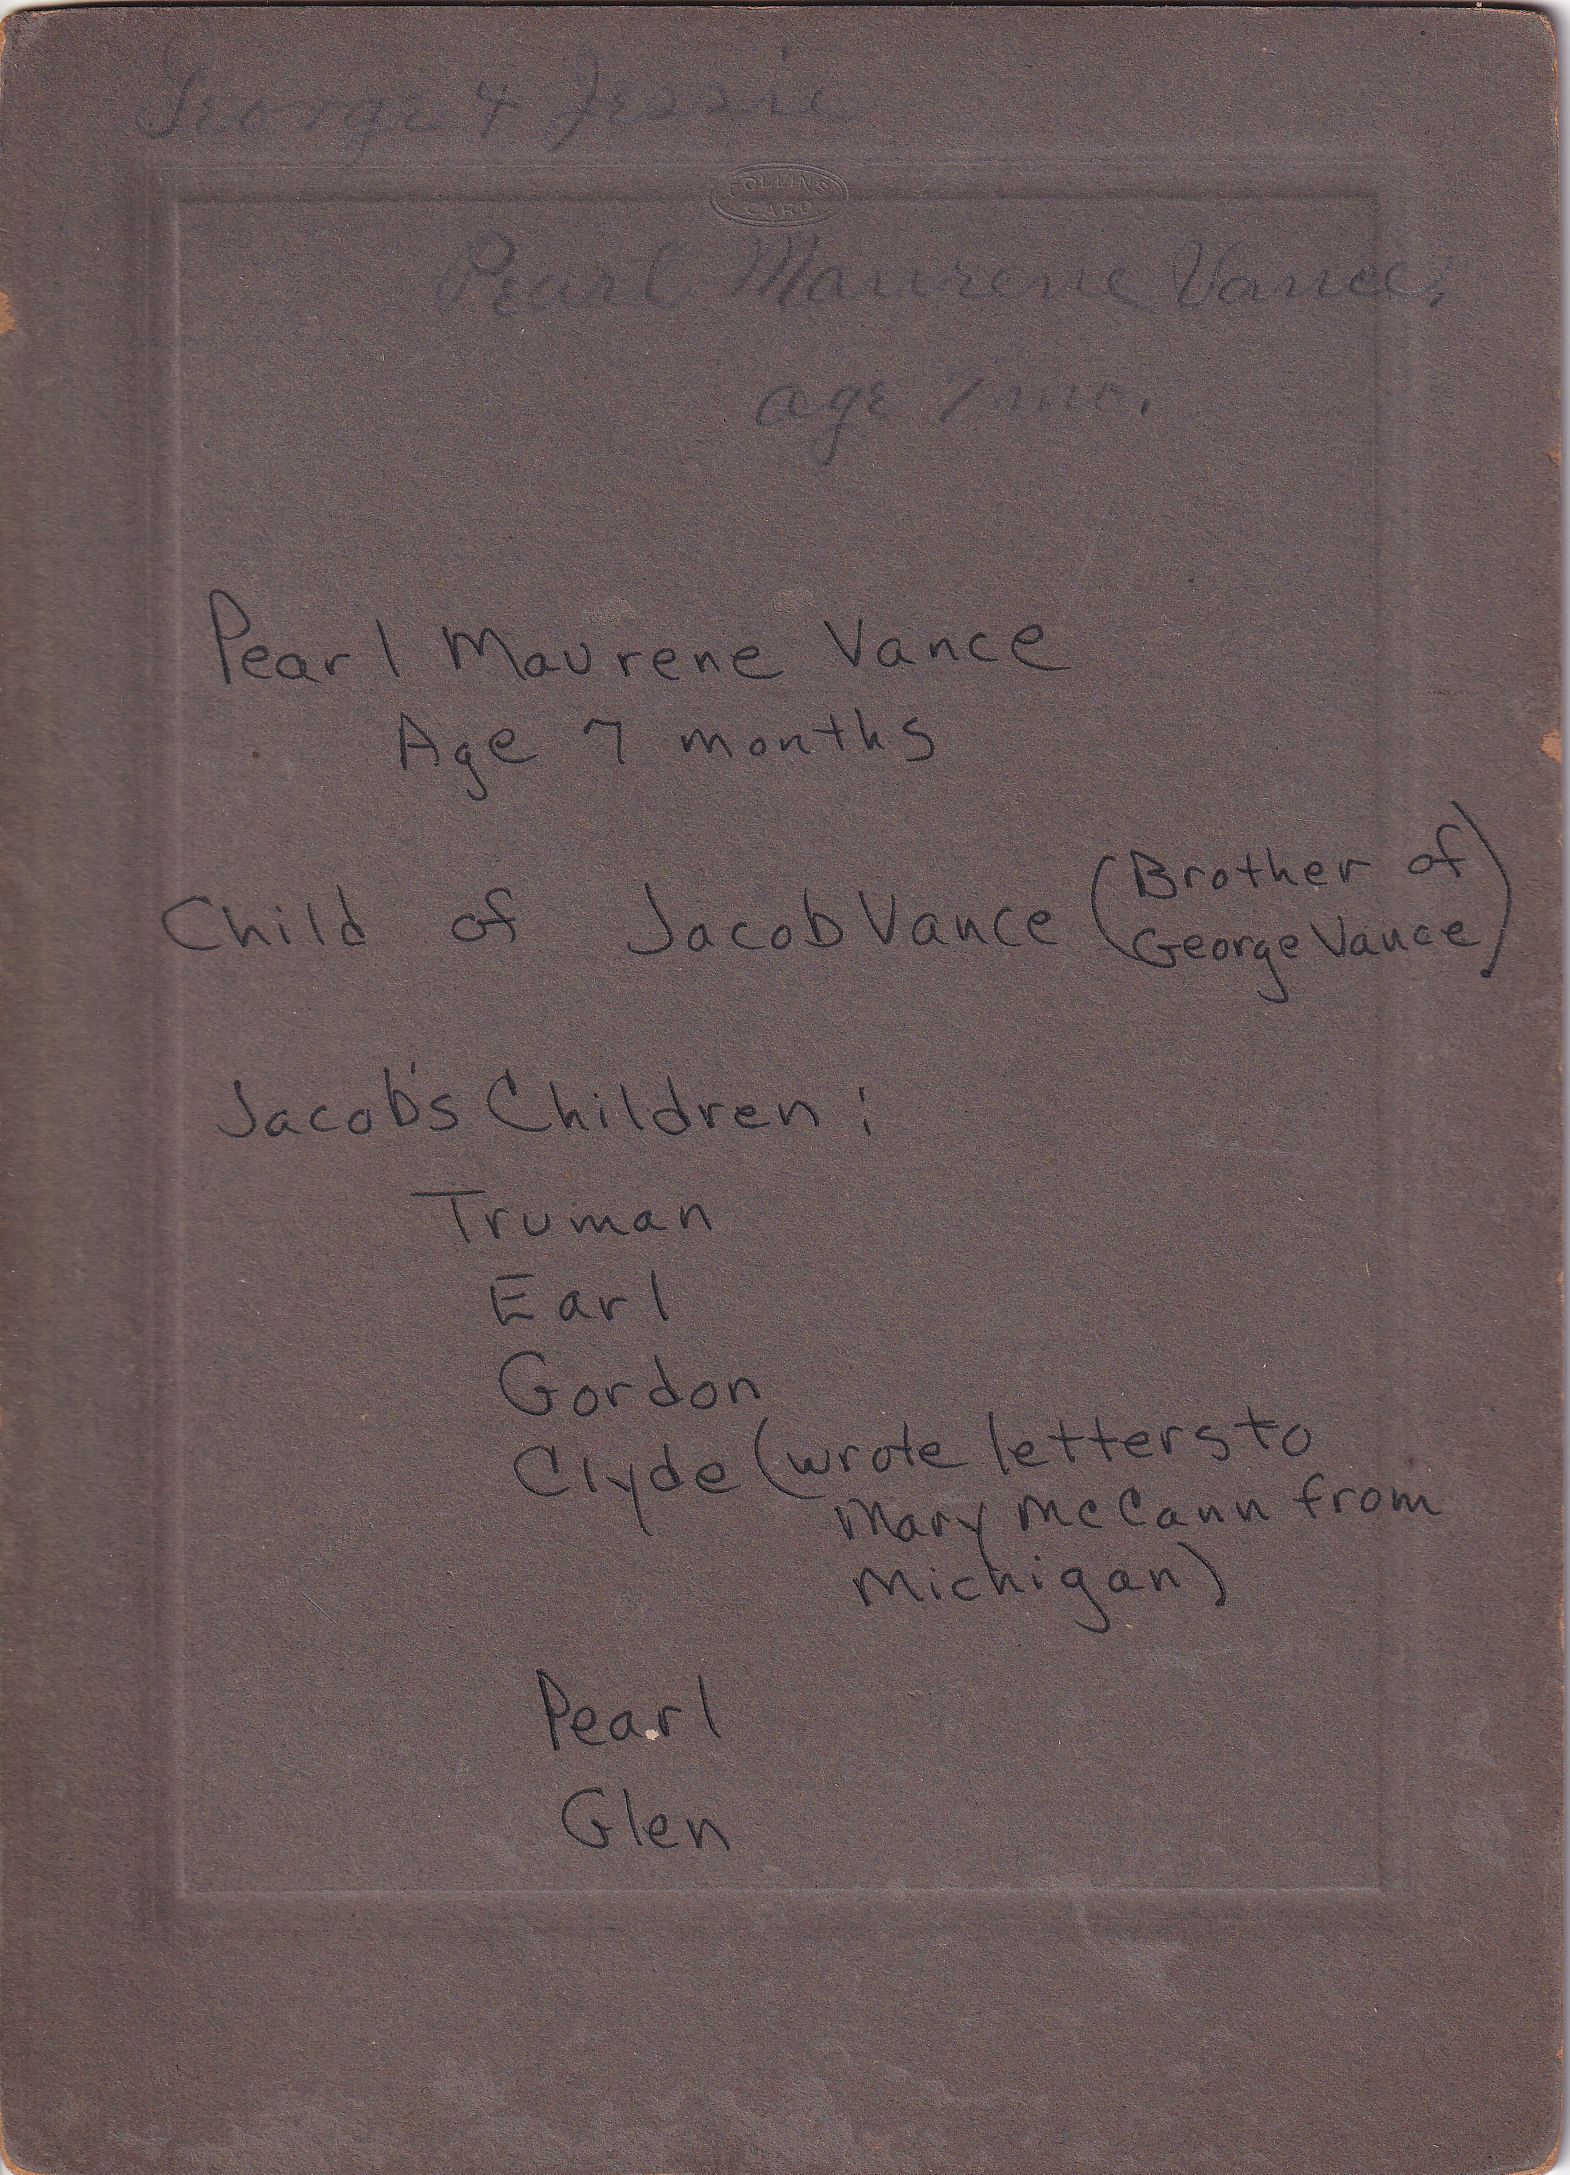 George & Jessie
COLLINS
CARD
Pearl Maurene Vance,
age 7 mo.
Pearl Maurene Vance
Age 7 months
Child of Jacob Vance (Brother of
George Vance)
Jacob's Children:
Truman
Earl
Gordon
Clyde (wrote letters to
Mary McCann from
Michigan)
Pearl
Glen